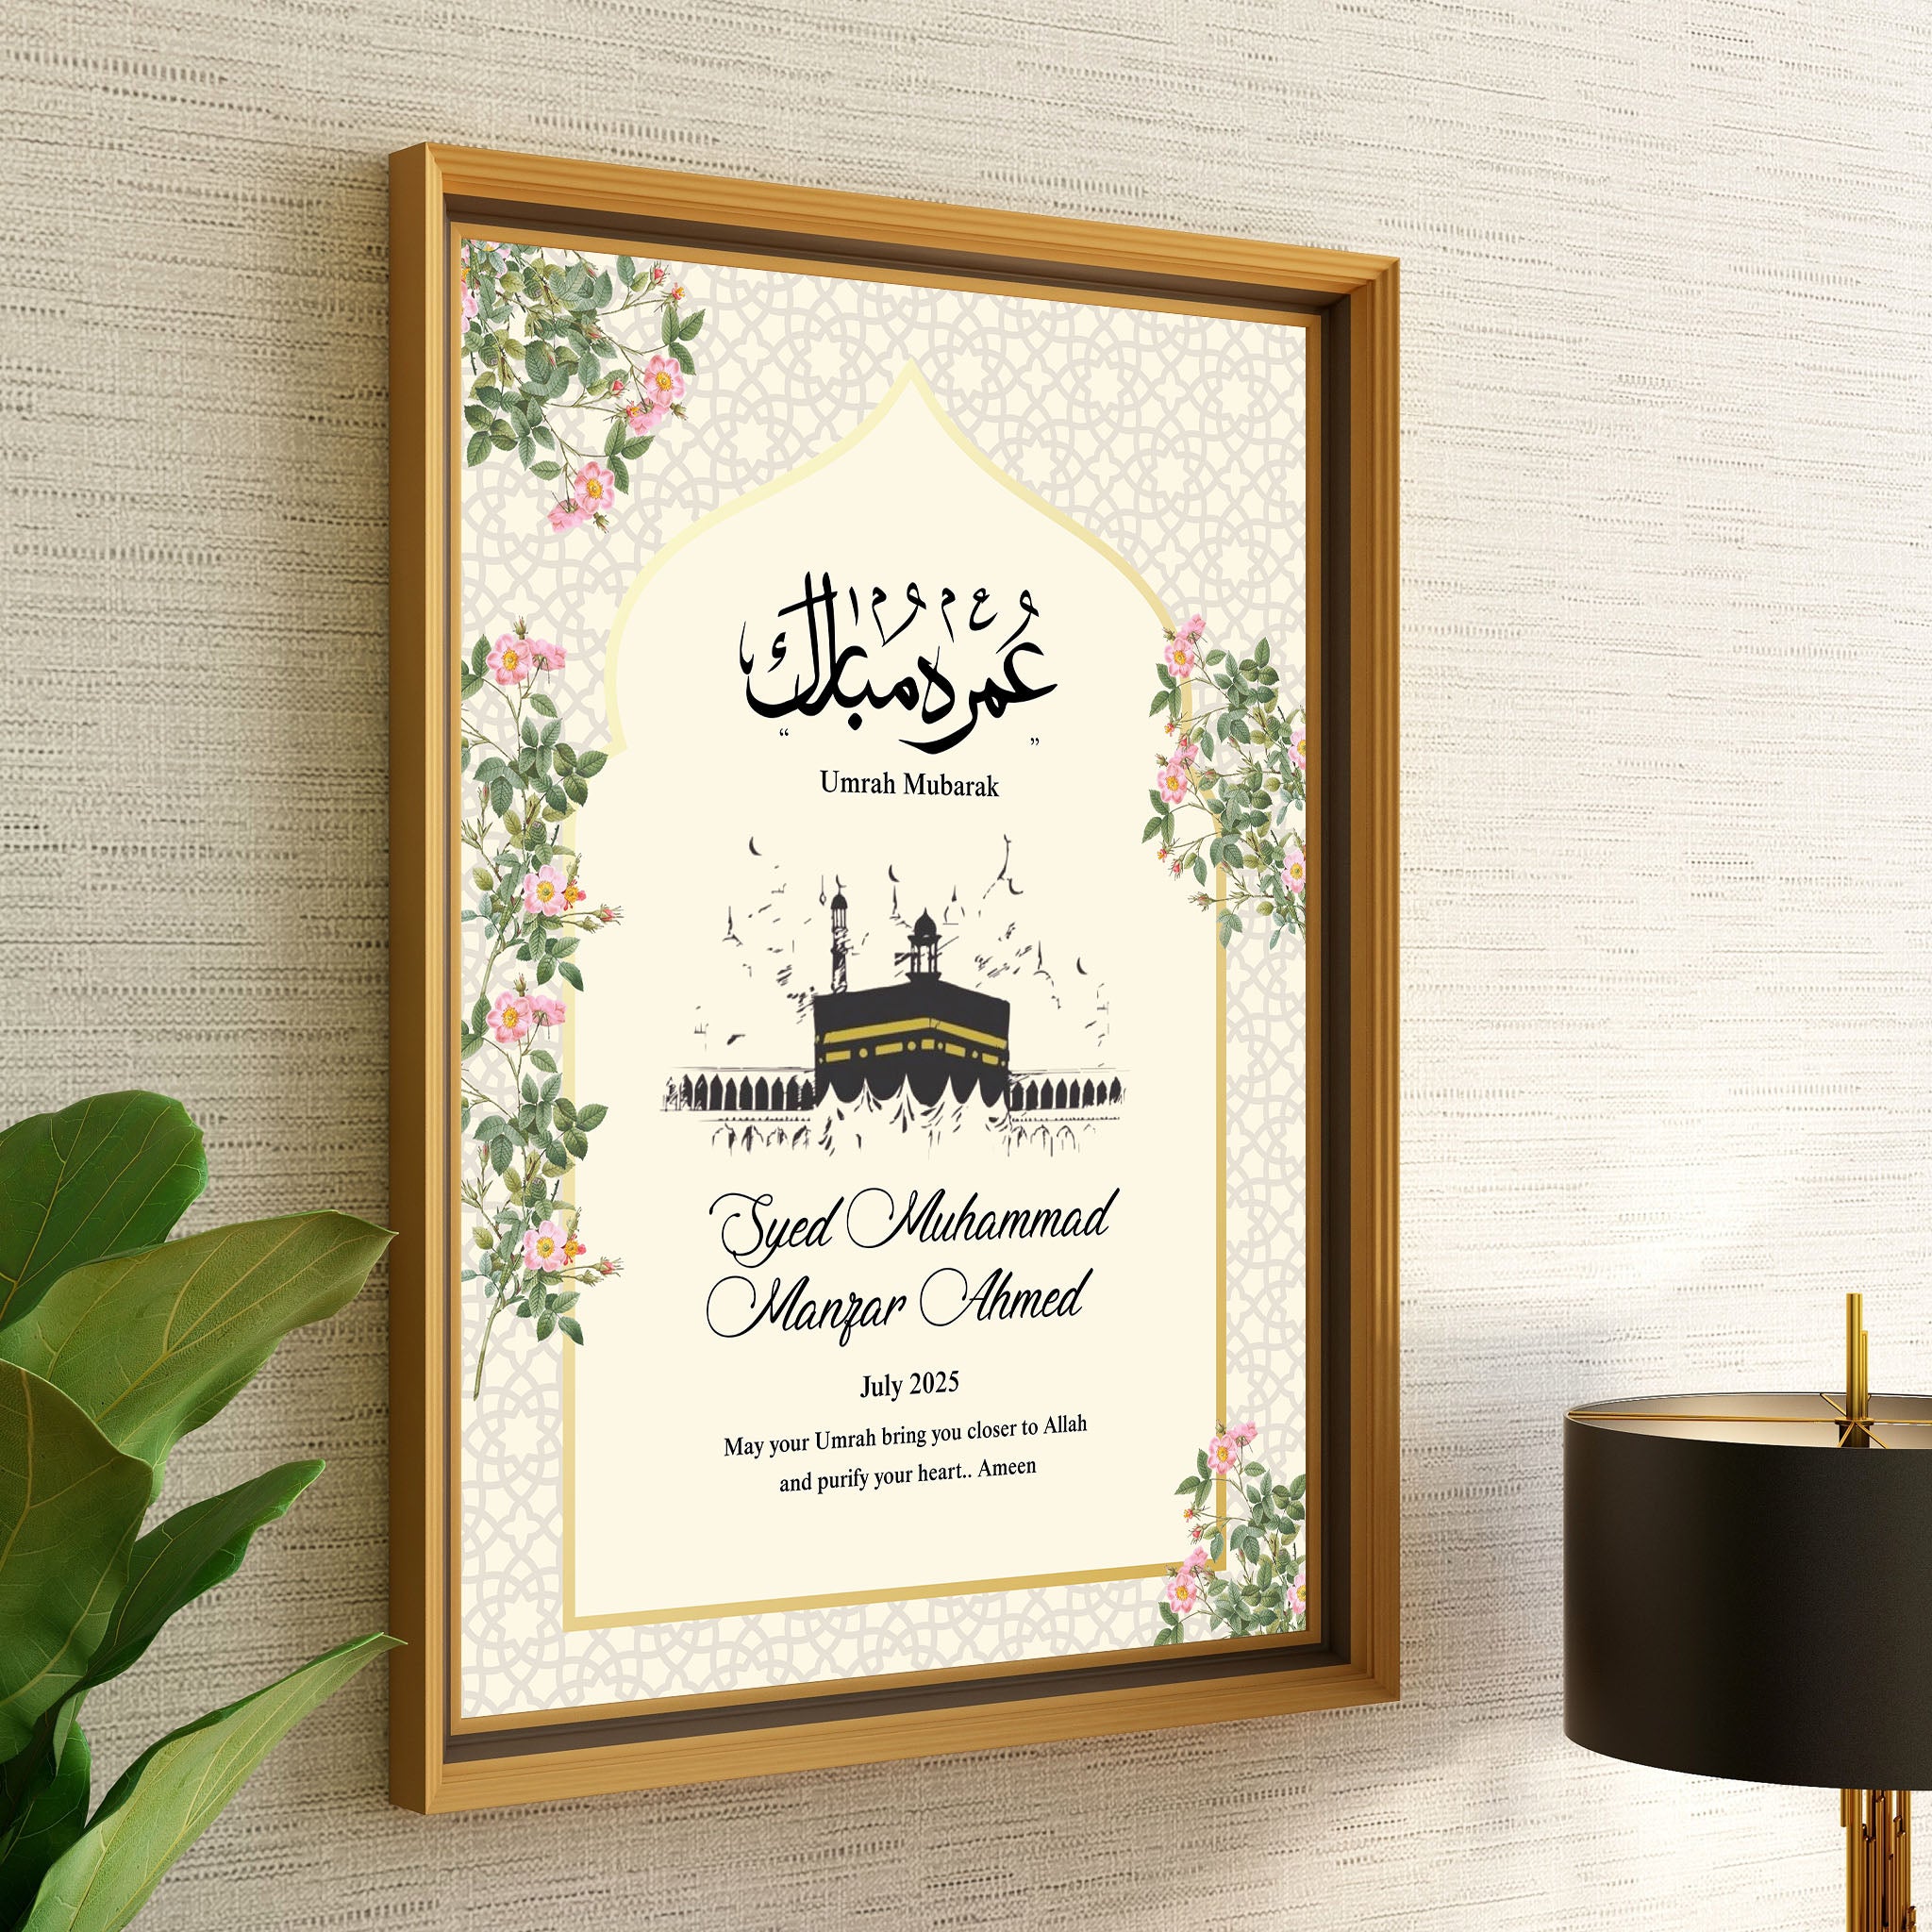 عُمْرَه مُبارَك
“ ”
Umrah Mubarak
Syed Muhammad
Manzar Ahmed
July 2025
May your Umrah bring you closer to Allah
and purify your heart.. Ameen